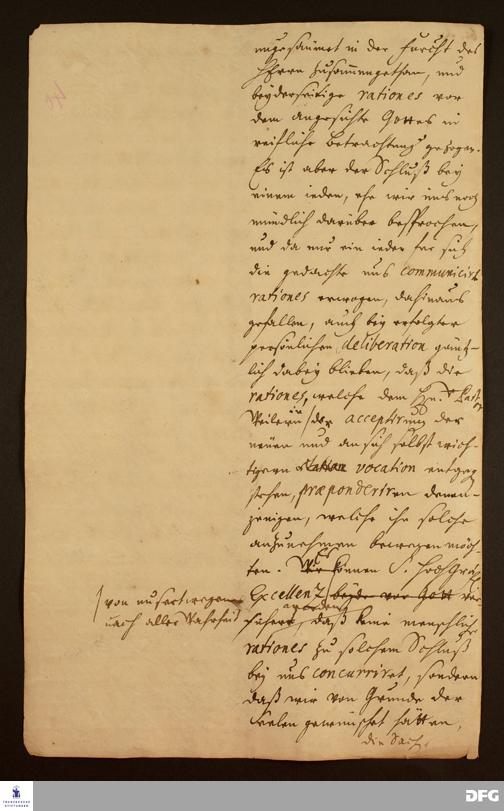 ungesäumet in der Furcht des
HErrn zusammengethan, und
beyderseitige rationes vor
dem Angesichte Gottes in
reifliche Betrachtung gezogen.
Es ist aber der Schluß bey
einem ieden, ehe wir uns noch
mündlich darüber besprochen,
und da nur ein ieder für sich
die gedachte uns communicirte
rationes erwogen, dahinaus
gefallen, auch bey erfolgter
persönlichen deliberation gäntz-
lich dabey blieben, daß die
rationes, welche dem Hn. Past.
in acceptirung der
neuen und an sich selbst wich-
tigern vocation entgeg
stehen, præponderiren denen-
jenigen, welche ihn solche
anzunehmen bewegen möch-
ten. Wir können S. HochGräfl.
Excellentz beyde vor Gott ver-
von unsertwegen
nach aller Wahrheit
sichern, daß keine menschliche
rationes zu solchem Schluß
bey uns concurriret, sondern
daß wir von Grunde der
Seelen gewünschet hätten,
die Sach
FRANCKESCHE STIFTUNGEN
DFG